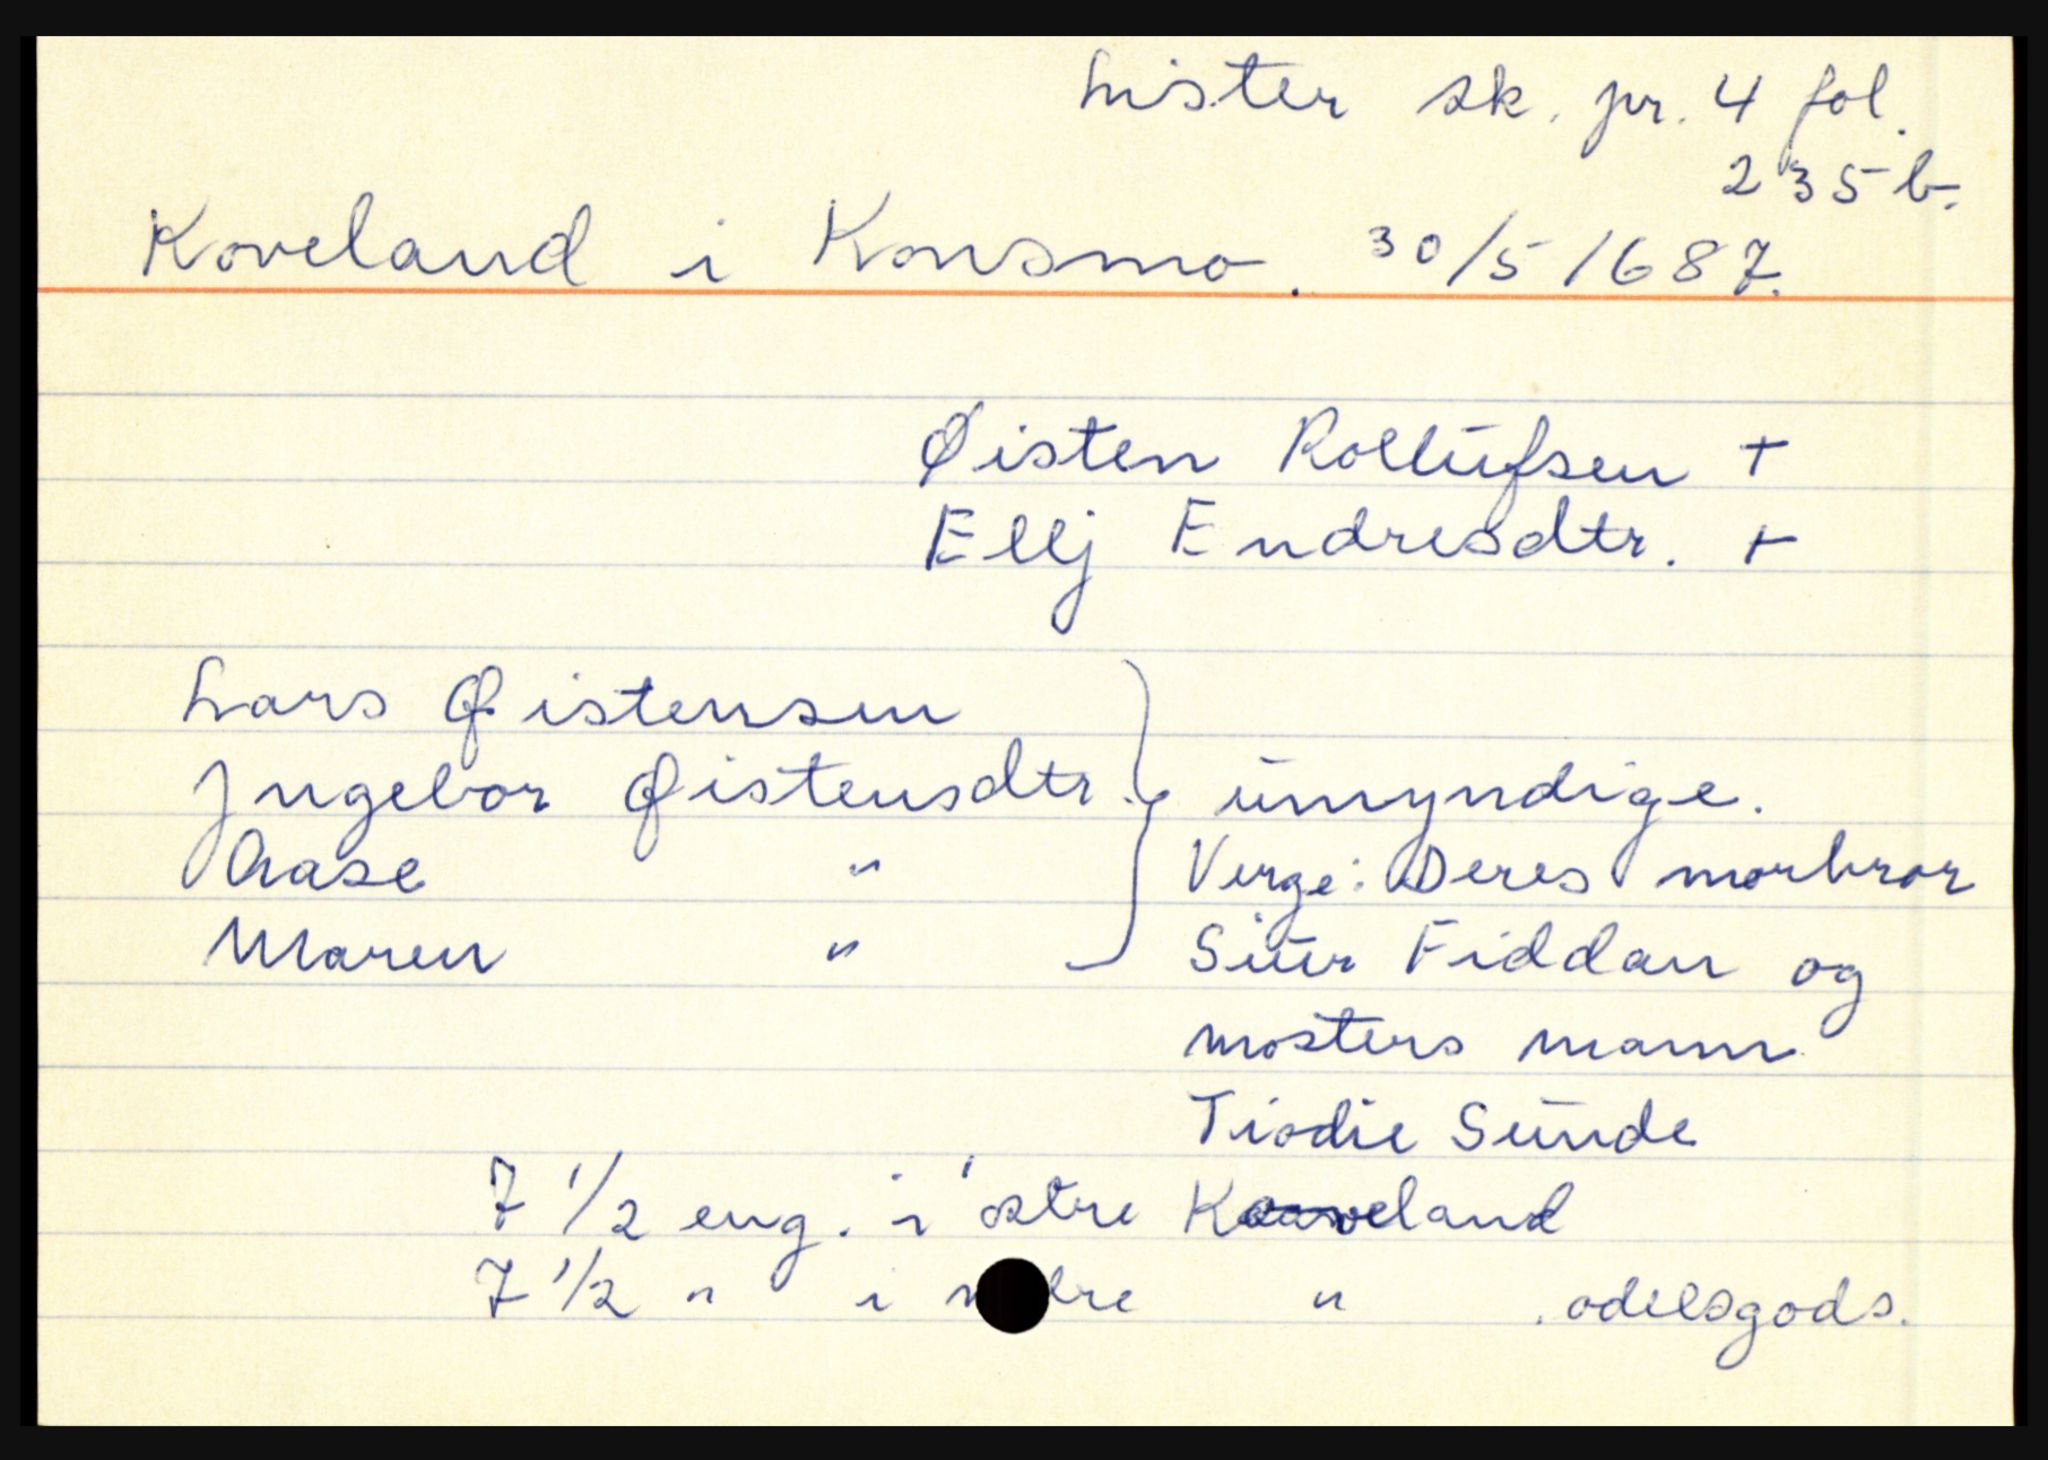 Lister sk. pr. 4 fol.
235 b.
Koveland i Konsmo. 30/5 1687.
Øisten Rollūfsen +
Ellj Endresdtr. +
Lars Øistensen
Jngebor Øistensdtr. } ūmyndige.
Aase " Verge: Deres morbror
Maren " Siūr Fiddan og
mosters mann
Tiodie Sūnde
7 1/2 eng. i østre Kaaveland
7 1/2 " i " . odelsgods.